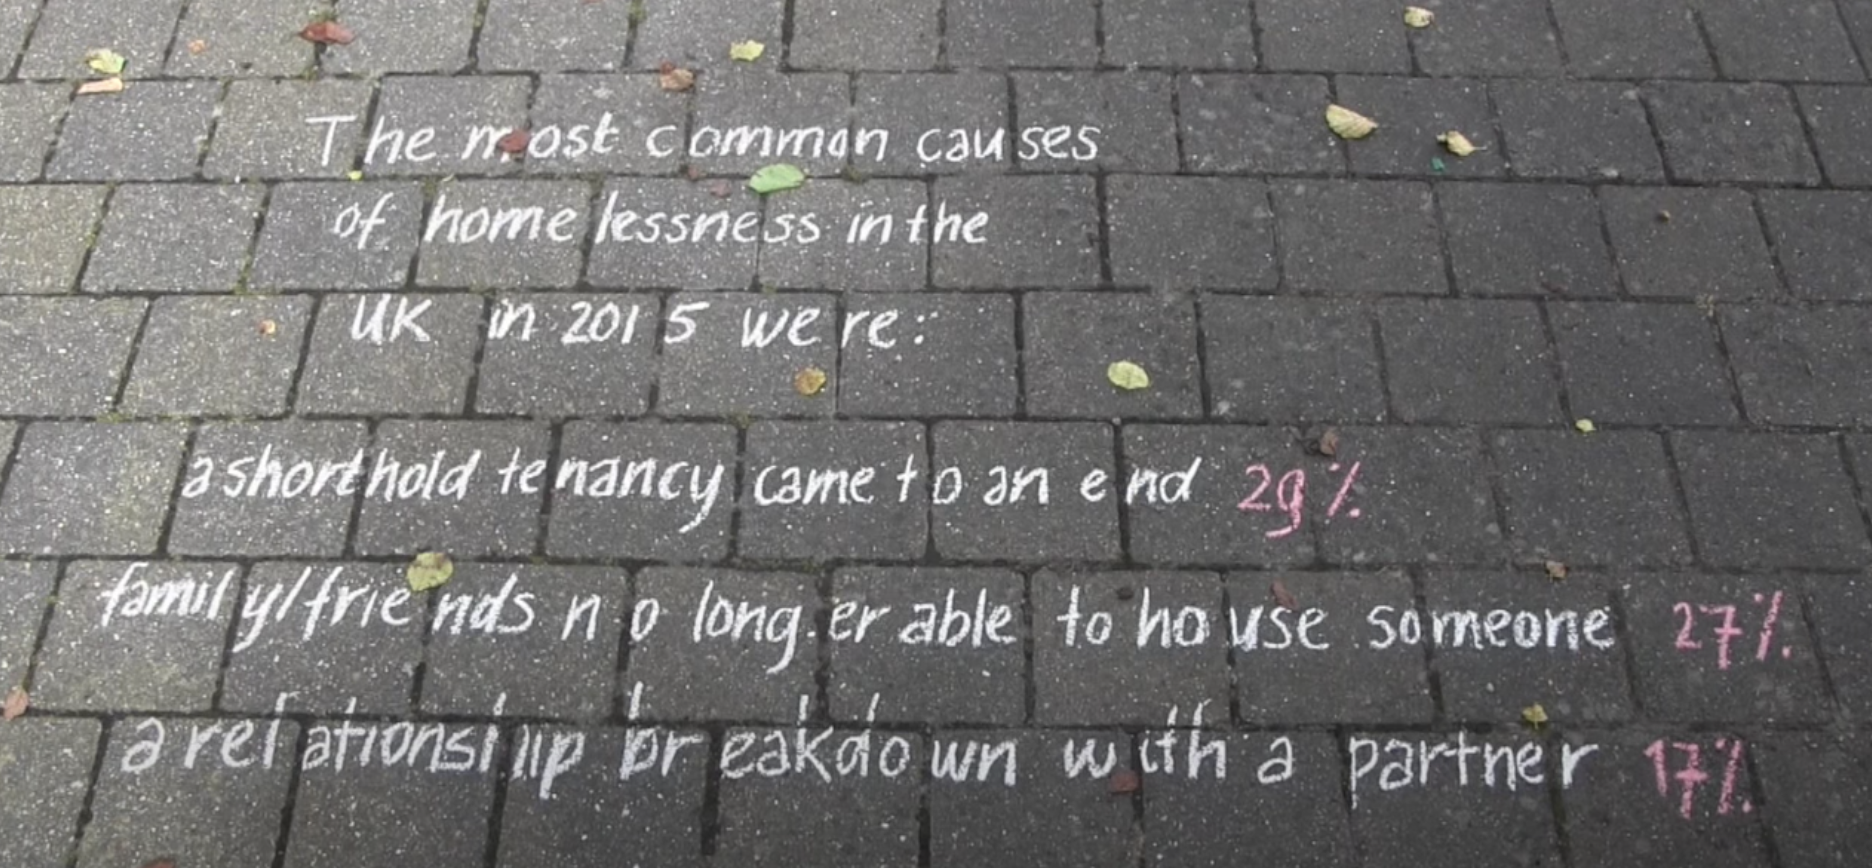 The most common causes
of homelessness in the
UK in 2015 were:
a shorthold tenancy came to an end 29%
family/friends no longer able to house someone 27%
a relationship breakdown with a partner 17%